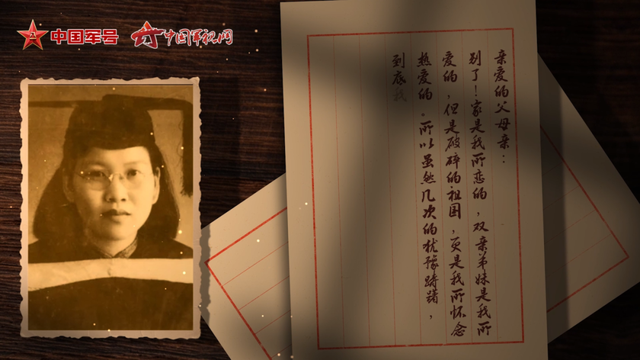 中国军号
中国军视网
亲爱的父母亲：
别了！家是我所恋的，双亲弟妹是我所
爱的，但是破碎的祖国，更是我所怀念
热爱的，所以虽然几次的犹豫踌躇，
到底我